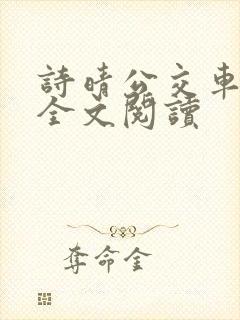 詩晴公交車
全文閱讀
奪命金